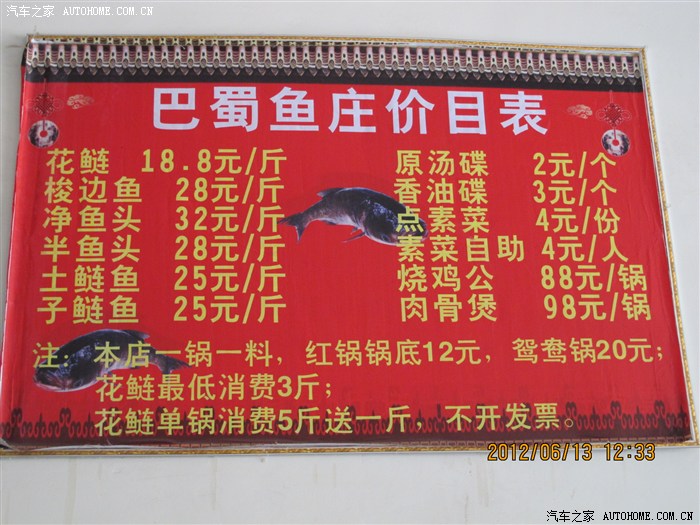 汽车之家 AUTOHOME.COM.CN
巴蜀鱼庄价目表
花鲢 18.8元/斤 原汤碟 2元/个
梭边鱼 28元/斤 香油碟 3元/个
净鱼头 32元/斤 点素菜 4元/份
半鱼头 28元/斤 素菜自助 4元/人
土鲢鱼 25元/斤 烧鸡公 88元/锅
子鲢鱼 25元/斤 肉骨煲 98元/锅
注：本店一锅一料，红锅锅底12元，鸳鸯锅20元；
花鲢最低消费3斤；
花鲢单锅消费5斤送一斤，不开发票。
2012/06/13 12:33
汽车之家 AUTOHOME.COM.CN